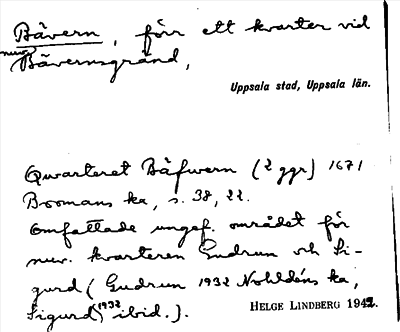 Bävern, förr ett kvarter vid
nuv.
Bävernsgränd,
Uppsala stad, Uppsala län.
Qvarteret Bäfwern (2 ggr) 1671
Bromans ka, s. 38, 22.
Omfattade ungef. området för
nuv. kvarteren Gudrun och Si-
gurd (Gudrun 1932 Nohldéns ka,
Sigurd 1932 ibid.).
HELGE LINDBERG 1942.